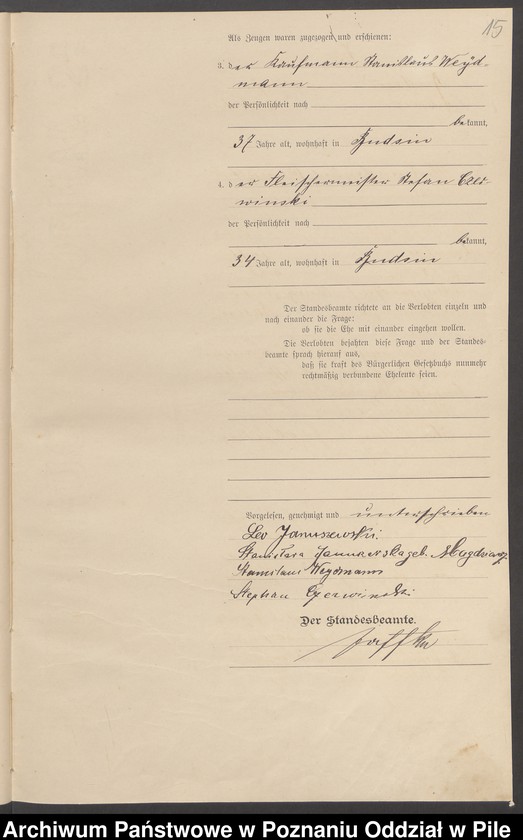 15
Als Zeugen waren zugezogen und erschienen:
3. der Kaufmann Stanislaus Weyd-
mann
der Persönlichkeit nach
bekannt,
37 Jahre alt, wohnhaft in Budsin
4. der Fleischermeister Stefan Czer-
winski
der Persönlichkeit nach
bekannt,
34 Jahre alt, wohnhaft in Budsin
Der Standesbeamte richtete an die Verlobten einzeln und
nach einander die Frage:
ob sie die Ehe mit einander eingehen wollen.
Die Verlobten bejahten diese Frage und der Standes-
beamte sprach hierauf aus,
daß sie kraft des Bürgerlichen Gesetzbuchs nunmehr
rechtmäßig verbundene Eheleute seien.
Vorgelesen, genehmigt und unterschrieben
Leo Januszewski.
Stanisława geb.
Stanislaus Weydmann
Stephan Czerwinski
Der Standesbeamte.
Jaffke
Archiwum Państwowe w Poznaniu Oddział w Pile